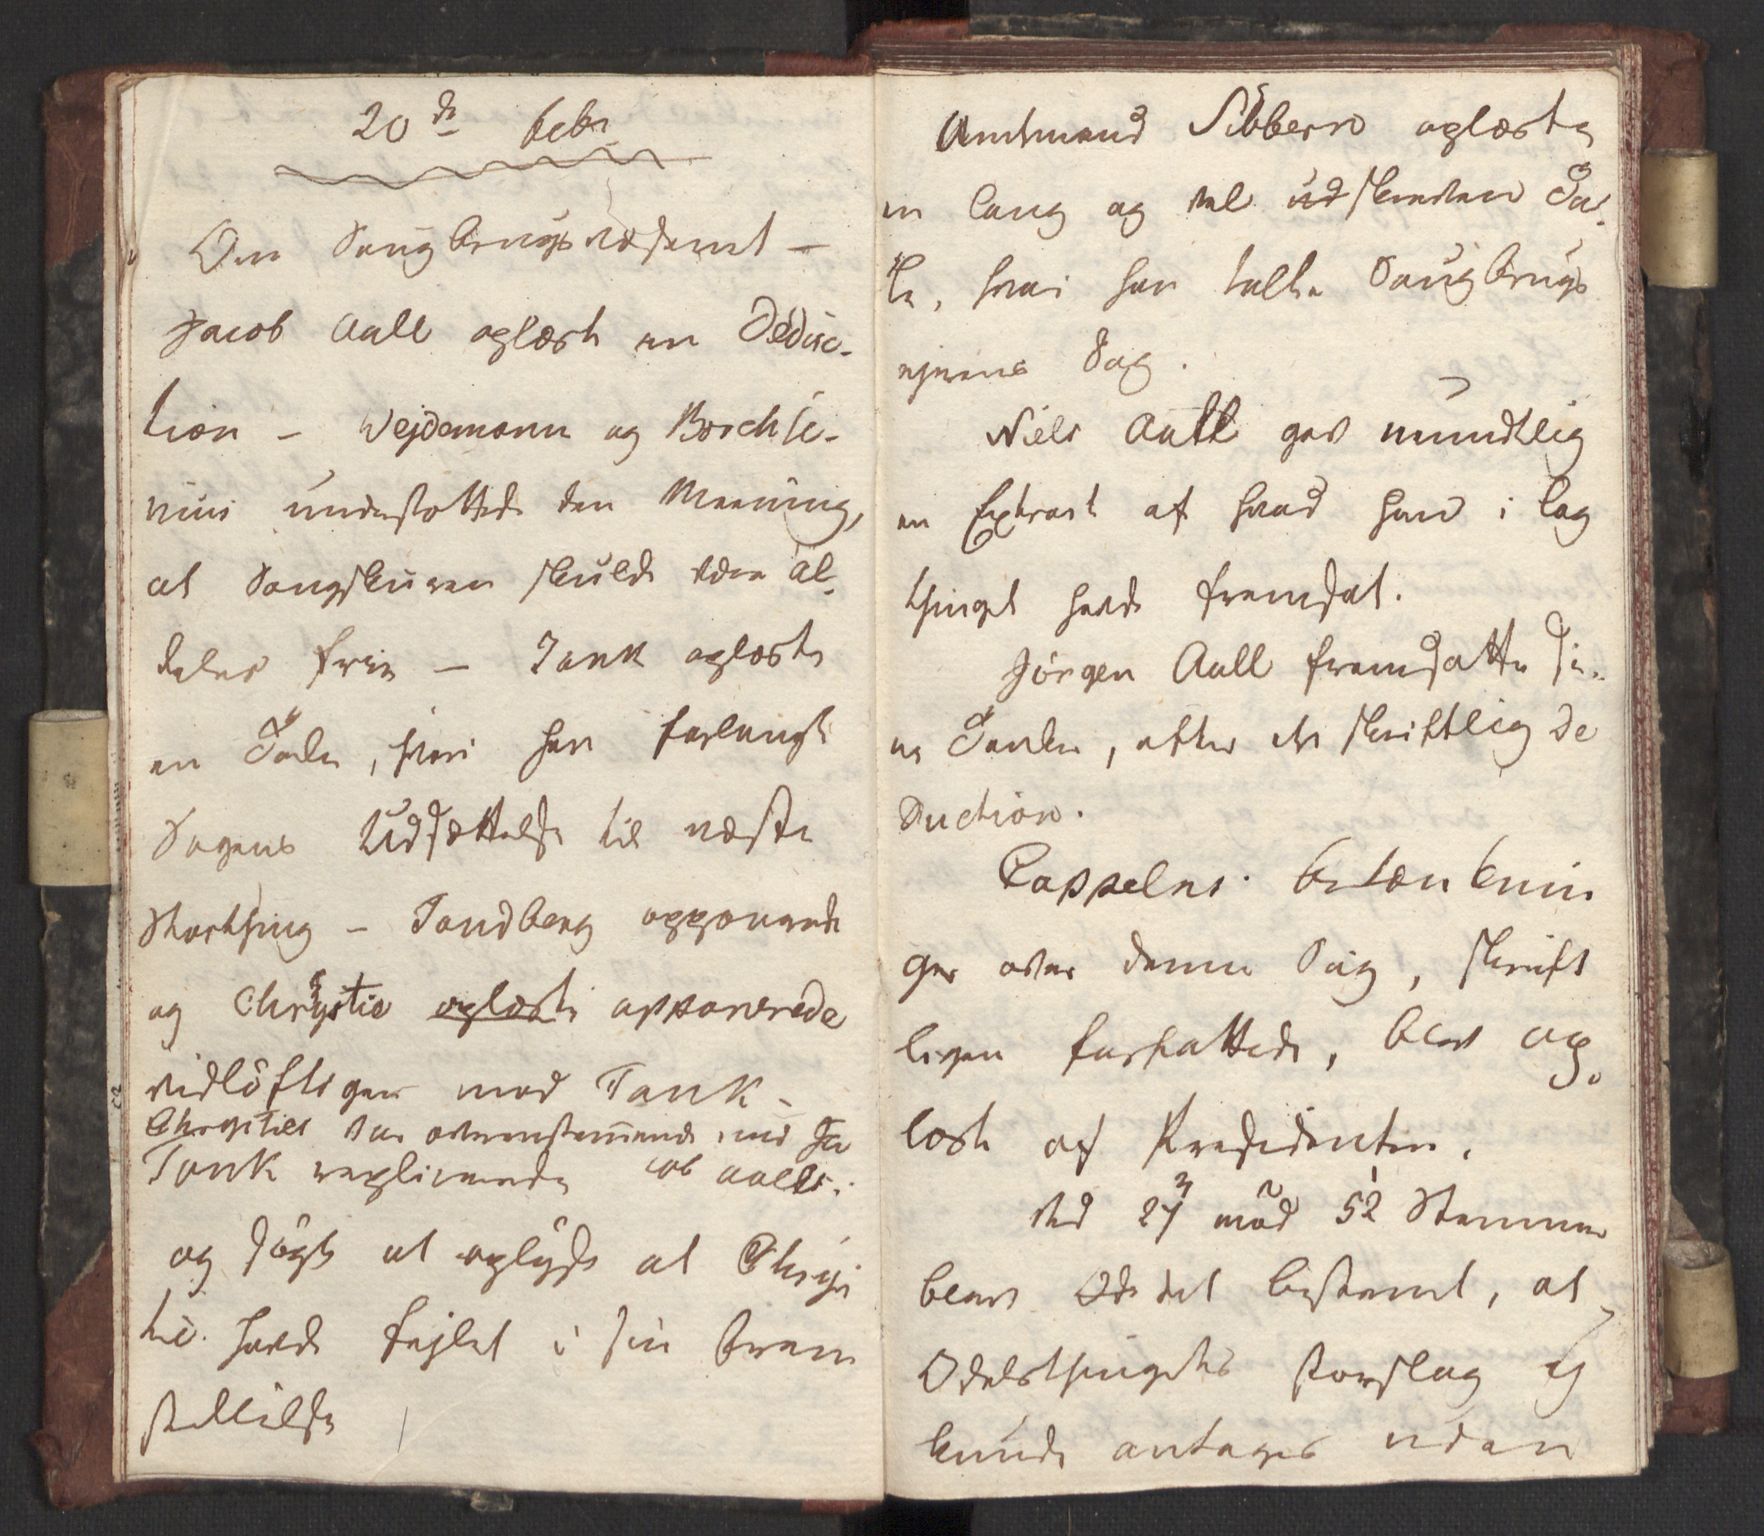 20de Febr
Om Saugbrugsvæsenet -
Jacob Aall oplæste en Deduc-
tion - Wejdemann og Borchse-
nius understøttede den Meening,
at Saugskuren skulde være al-
deles frie - Tank oplæste
en Tale, hvori han forlangte
Sagens Udsættelse til næste
Storthing - Tandberg opponerede
og Christie oplæste opponerede
vidløftigen mod Tank -
Chrysties var overensstemmende med Ja
Tank replicerede cob Aalls.
og søgte at oplyse at Chrys
tie havde fejlet i sin Frem
stillelse
Amtmand Sibbern oplæste
en lang og vel udskreven Ta-
le, hvori han talte Saugbrugs
ejernes Sag.
Niels Aall gav mundtlig
en Extract af hvad han i Lag
thinget havde fremsat.
Jørgen Aall fremsatte si-
ne Tanker, efter en skriftlig De
duction.
Cappelens Betænknin
ger over denne Sag, skrift
ligen forfattede, blev op-
læste af Præsidenten.
Ved 27 mod 52 Stemmer
blev det bestemt, at
Odelsthingets Forslag ej
kunde antages uden